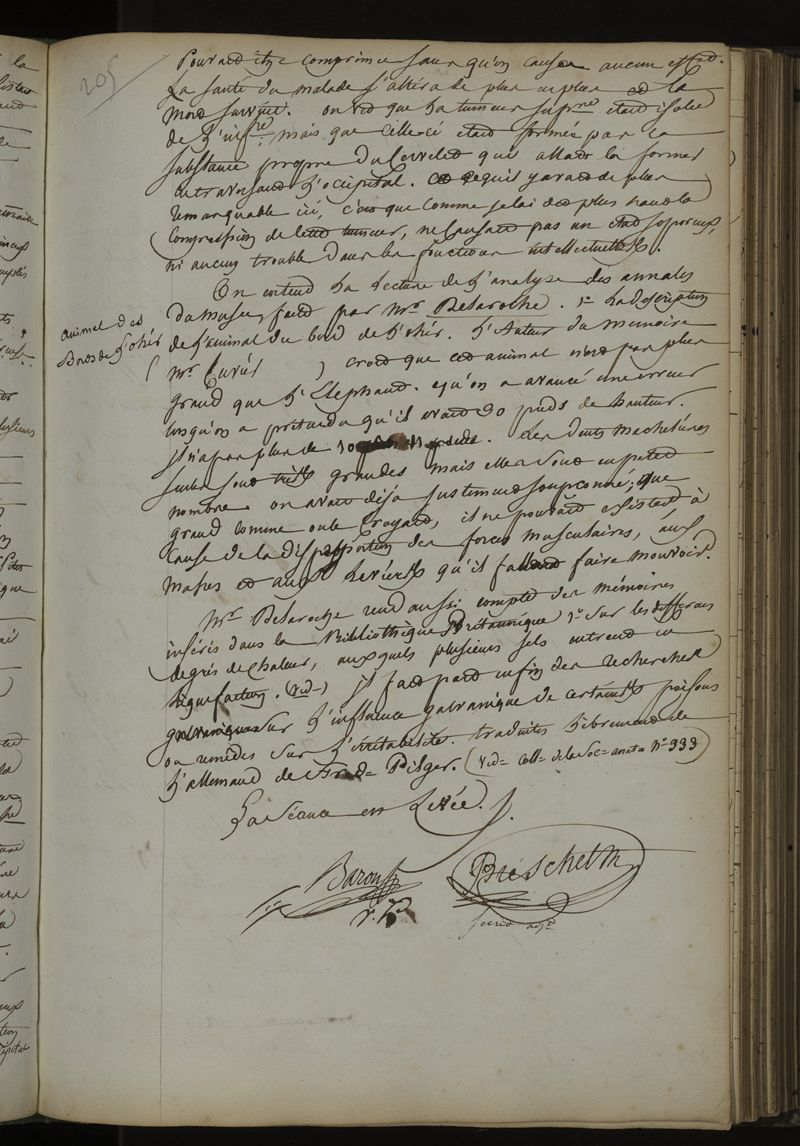 205
Pouvait être comprimée sans qu'on causa aucun effet.
La santé du malade s'altéra de plus en plus et la
mort survint. on vit que la tumeur supre était isolée
de l'infre, mais que celle-ci était formée par la
substance propre du Cervelet qui allait la former
en traversant l'occipital. Ce qu'il y avait de plus
remarquable ici, c'est que comme celui des plus haut la
Compression de cette tumeur, ne causait pas un état soporeux,
ni aucun trouble dans les fonctions intellectuelles.
On entend la lecture de l'analyse des annales
du museum, fait par Mr. Delaroche. 1° la description
animal des
Bords de l'ohio
de l'animal du bord de l'ohio. L'Auteur du memoire
(Mr. Cuvier ) croit que cet animal n'est pas plus
grand que l'Elephant. qu'on a avancé une erreur
lorsqu'on a prétendu qu'il avait 30 pieds de hauteur.
il n'a pas plus de 10 . Les Dents machelieres
seules sont très grandes mais elles sont en petit
nombre on avait déjà justement soupçonné, que
grand comme on le croyait, il ne pouvait exister à
Cause de la disproportion des forces musculaires, aux
masses et aux leviers qu'il fallait faire mouvoir.
Mr. Delaroche rend aussi compte des mémoires
insérés dans la Bibliothèque Britannique 1° sur les differens
degrés de chaleur, auxquels plusieurs sels entrent en
liquefaction. (vid=) il fait part enfin des recherches
galvaniques sur l'influence galvanique de certains poisons
ou remèdes sur l'irritabilité. traduites librement de
l'allemand de Fred= Pilger. (vid= coll= de la soc= anat= N° 333)
La Séance est Levée.
Baron
v. P.
Breschet